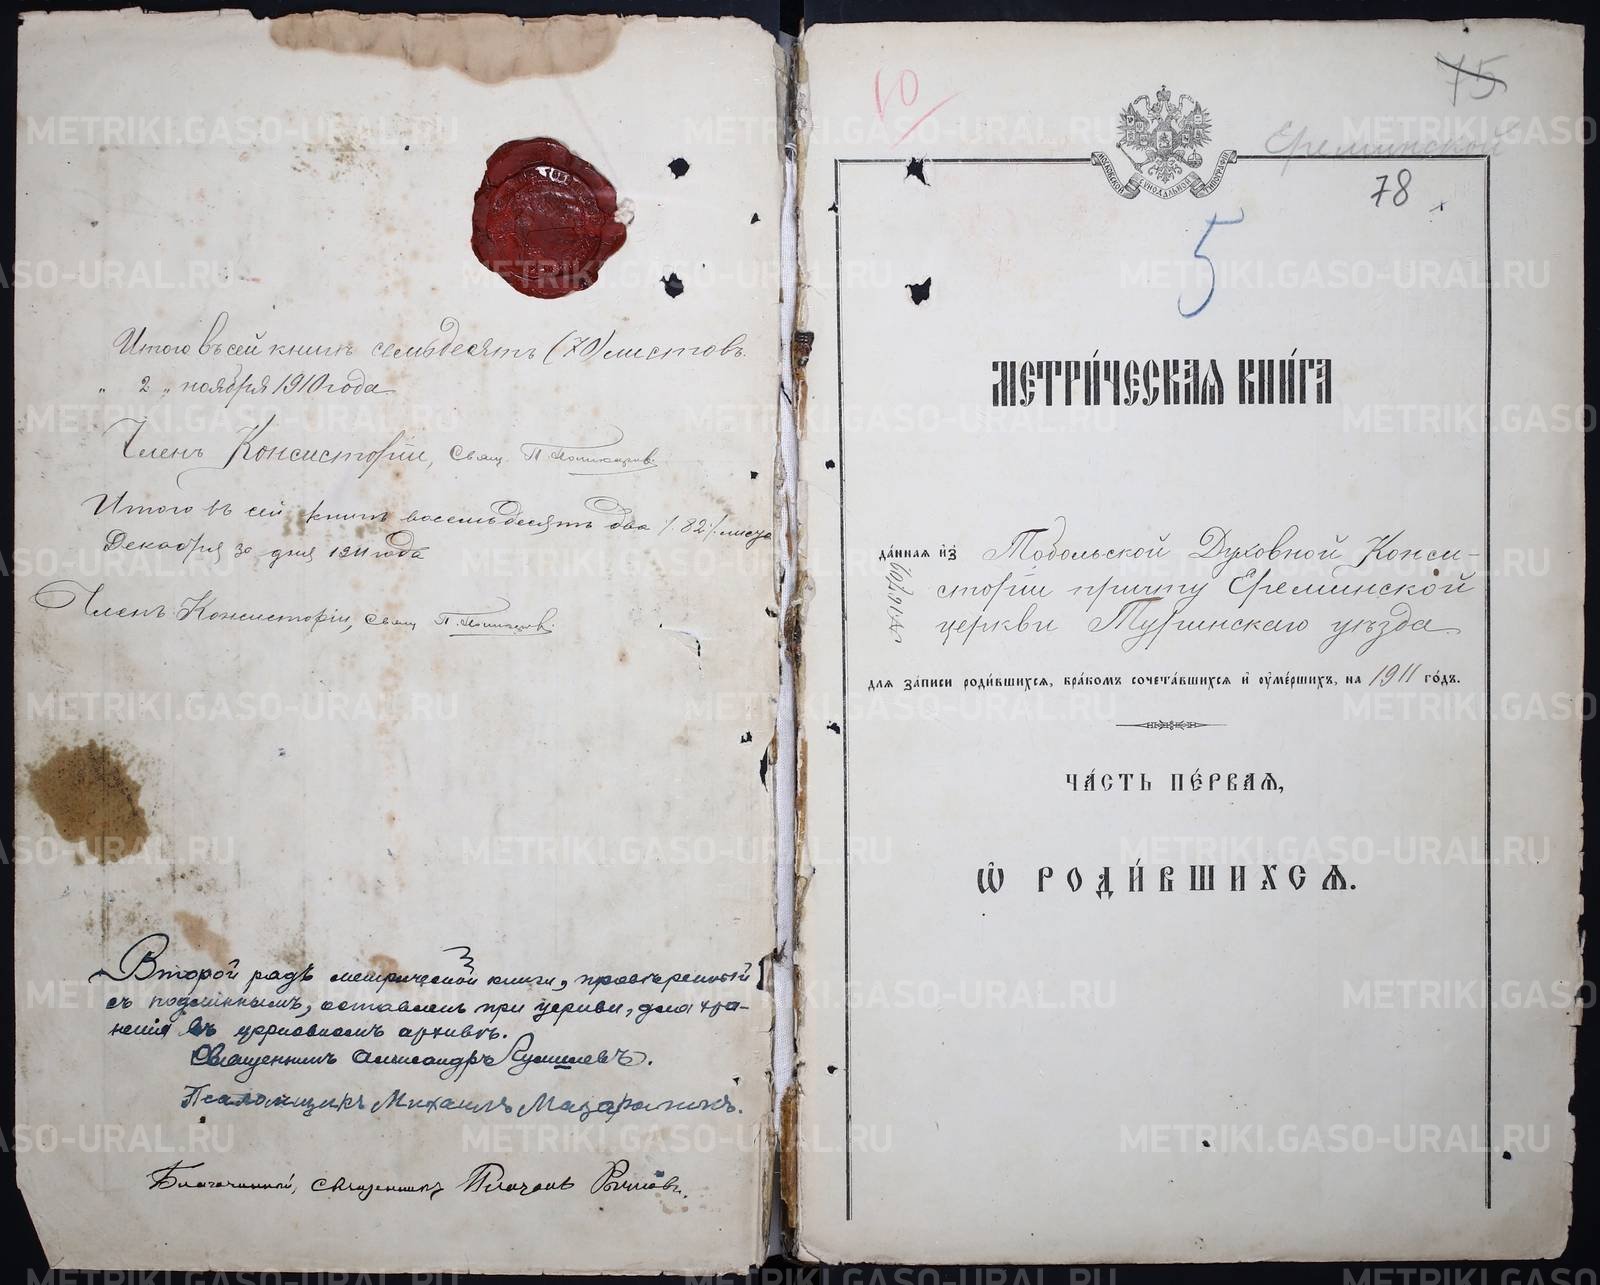 Итого въ сей книгѣ семьдесятъ (70) листовъ.
" 2 " ноября 1910 года
Членъ Консисторіи, Свящ. П.
Итого въ сей книгѣ восемьдесятъ два /.82./ листа
Декабря 30 дня 1911 года
Членъ Консисторіи, Свящ. П.
Второй рядъ метрической книги, провѣренный
съ подлиннымъ, оставленъ при церкви, для хра-
ненія въ церковномъ архивѣ.
Священникъ Александръ
Псаломщикъ Михаилъ
Благочинный, священникъ
10
75
Ереминской
МОСКОВСКОЙ СѴНОДАЛЬНОЙ ТИПОГРАФІИ
78
5
МЕТРИ́ЧЕСКАѦ КНИ́ГА
да́ннаѧ и҆з̾ Тобольской Духовной Конси-
сторіи причту Ереминской
церкви Туринскаго уѣзда
длѧ за́писи роди́вшихсѧ, бра́комъ сочета́вшихсѧ и҆ оу҆ме́ршихъ, на 1911 го́дъ.
ЧА́СТЬ ПЕ́РВАѦ,
Ѽ РОДИ́ВШИХСѦ.
METRIKI.GASO-URAL.RU